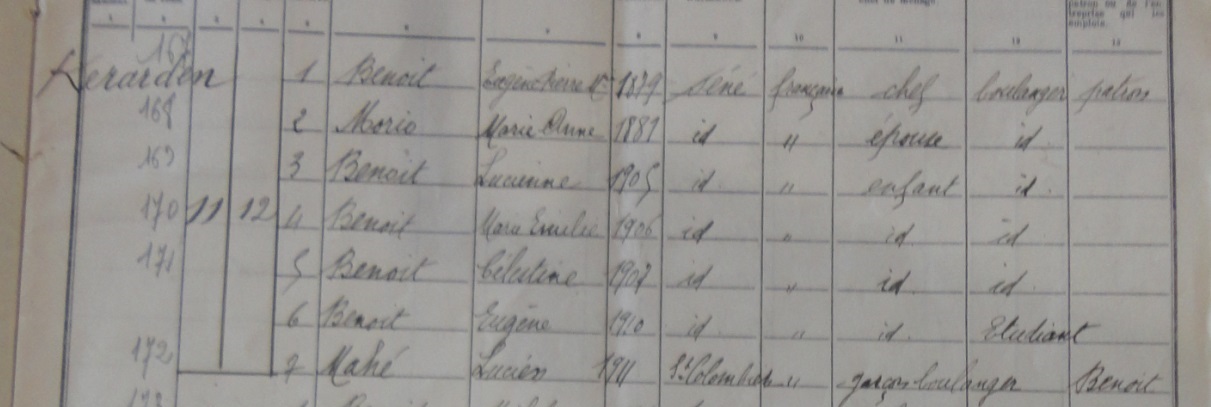 patron ou de l'en-
treprise qui les
emploie.
10 11 12 13
167
Kerarden 1 Benoit Eugène Pierre Mie 1879 Séné française chef boulanger patron
168 2 Morio Marie Anne 1881 id " épouse id.
169 3 Benoit Lucienne 1905 id " enfant id.
170 11 12 4 Benoit Marie Emilie 1906 id " id id
171 5 Benoit Célestine 1907 id " id. id.
6 Benoit Eugène 1910 id " id. Etudiant
172 7 Mahé Lucien 1911 St Colomban " garçon boulanger Benoit
173